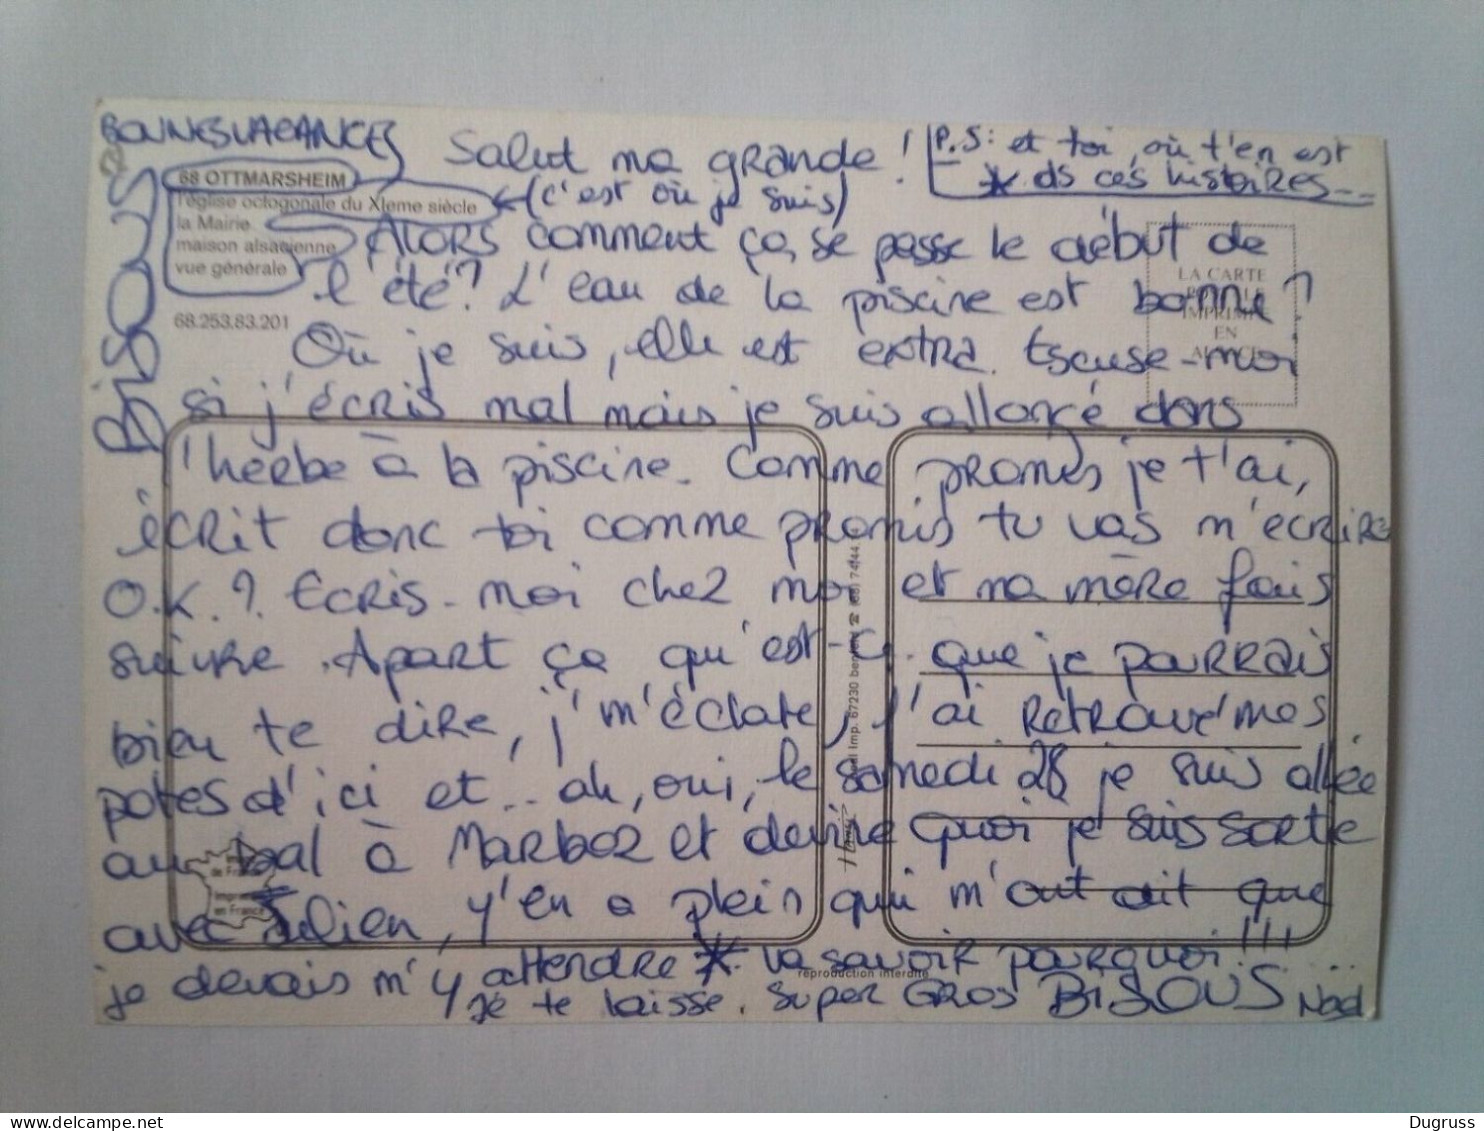 BONNES VACANCES
BISOUS
Salut ma grande !
P.S: et toi, où t'en est
* ds ces histoires...
68 OTTMARSHEIM
l'église octogonale du XIeme siècle
(c'est où je suis)
la Mairie
maison alsacienne
vue générale
68.253.83.201
LA CARTE
IMPRIMÉE
EN
Alors comment ça se passe le début de
l'été? L'eau de la piscine est bonne?
Où je suis, elle est extra. Escuse-moi
si j'écris mal mais je suis allongé dans
l'herbe à la piscine. Comme promis je t'ai,
écrit donc toi comme promis tu vas m'écrire
O.K.? Ecris-moi chez moi et ma mère fais
suivre. Apart ça qu'est-ce que je pourrais
bien te dire, j'm'éclate, j'ai retrouvé mes
potes d'ici et... ah, oui, le samedi 28 je suis allée
au bal à Marboz et devine quoi je suis sortie
avec Julien, y'en a plein qui m'ont dit que
je devais m'y attendre * va savoir pourquoi!!!
Je te laisse. Super GROS BISOUS Nad
Imp. 67230
de France
imprimé
en France
reproduction interdite
Dugruss